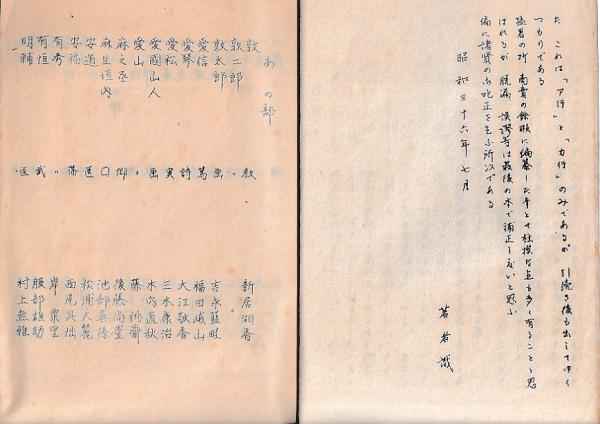 た これは「ア行」と「カ行」のみであるが 引続き後も出してゆく
つもりである
極暑の所 商賣の餘暇に編纂した本とて杜撰な点も多く有ることゝ思
はれるが 脱漏 誤謬等は最後の本で補正したいと思ふ
偏に諸賢の御叱正を乞ふ所以である
昭和三十六年七月
著者識
あの部
敦 〃 教 新居湘香
敦二郎
敦太郎 画 吉永藍畦
愛信 篤 福田峨山
愛琴 詩 大江敬香
愛松 実 三木康治
愛國山人 画 木内道秋
愛山 〃 藤
麻之丞 郷 後藤尚堂
麻生垣内 〇 池部真榛
安道 医 松浦大麓
安福 藩 西尾
有秀 〃 岸粟里
有垣 武 服部雄助
明輔 医 村上無雅